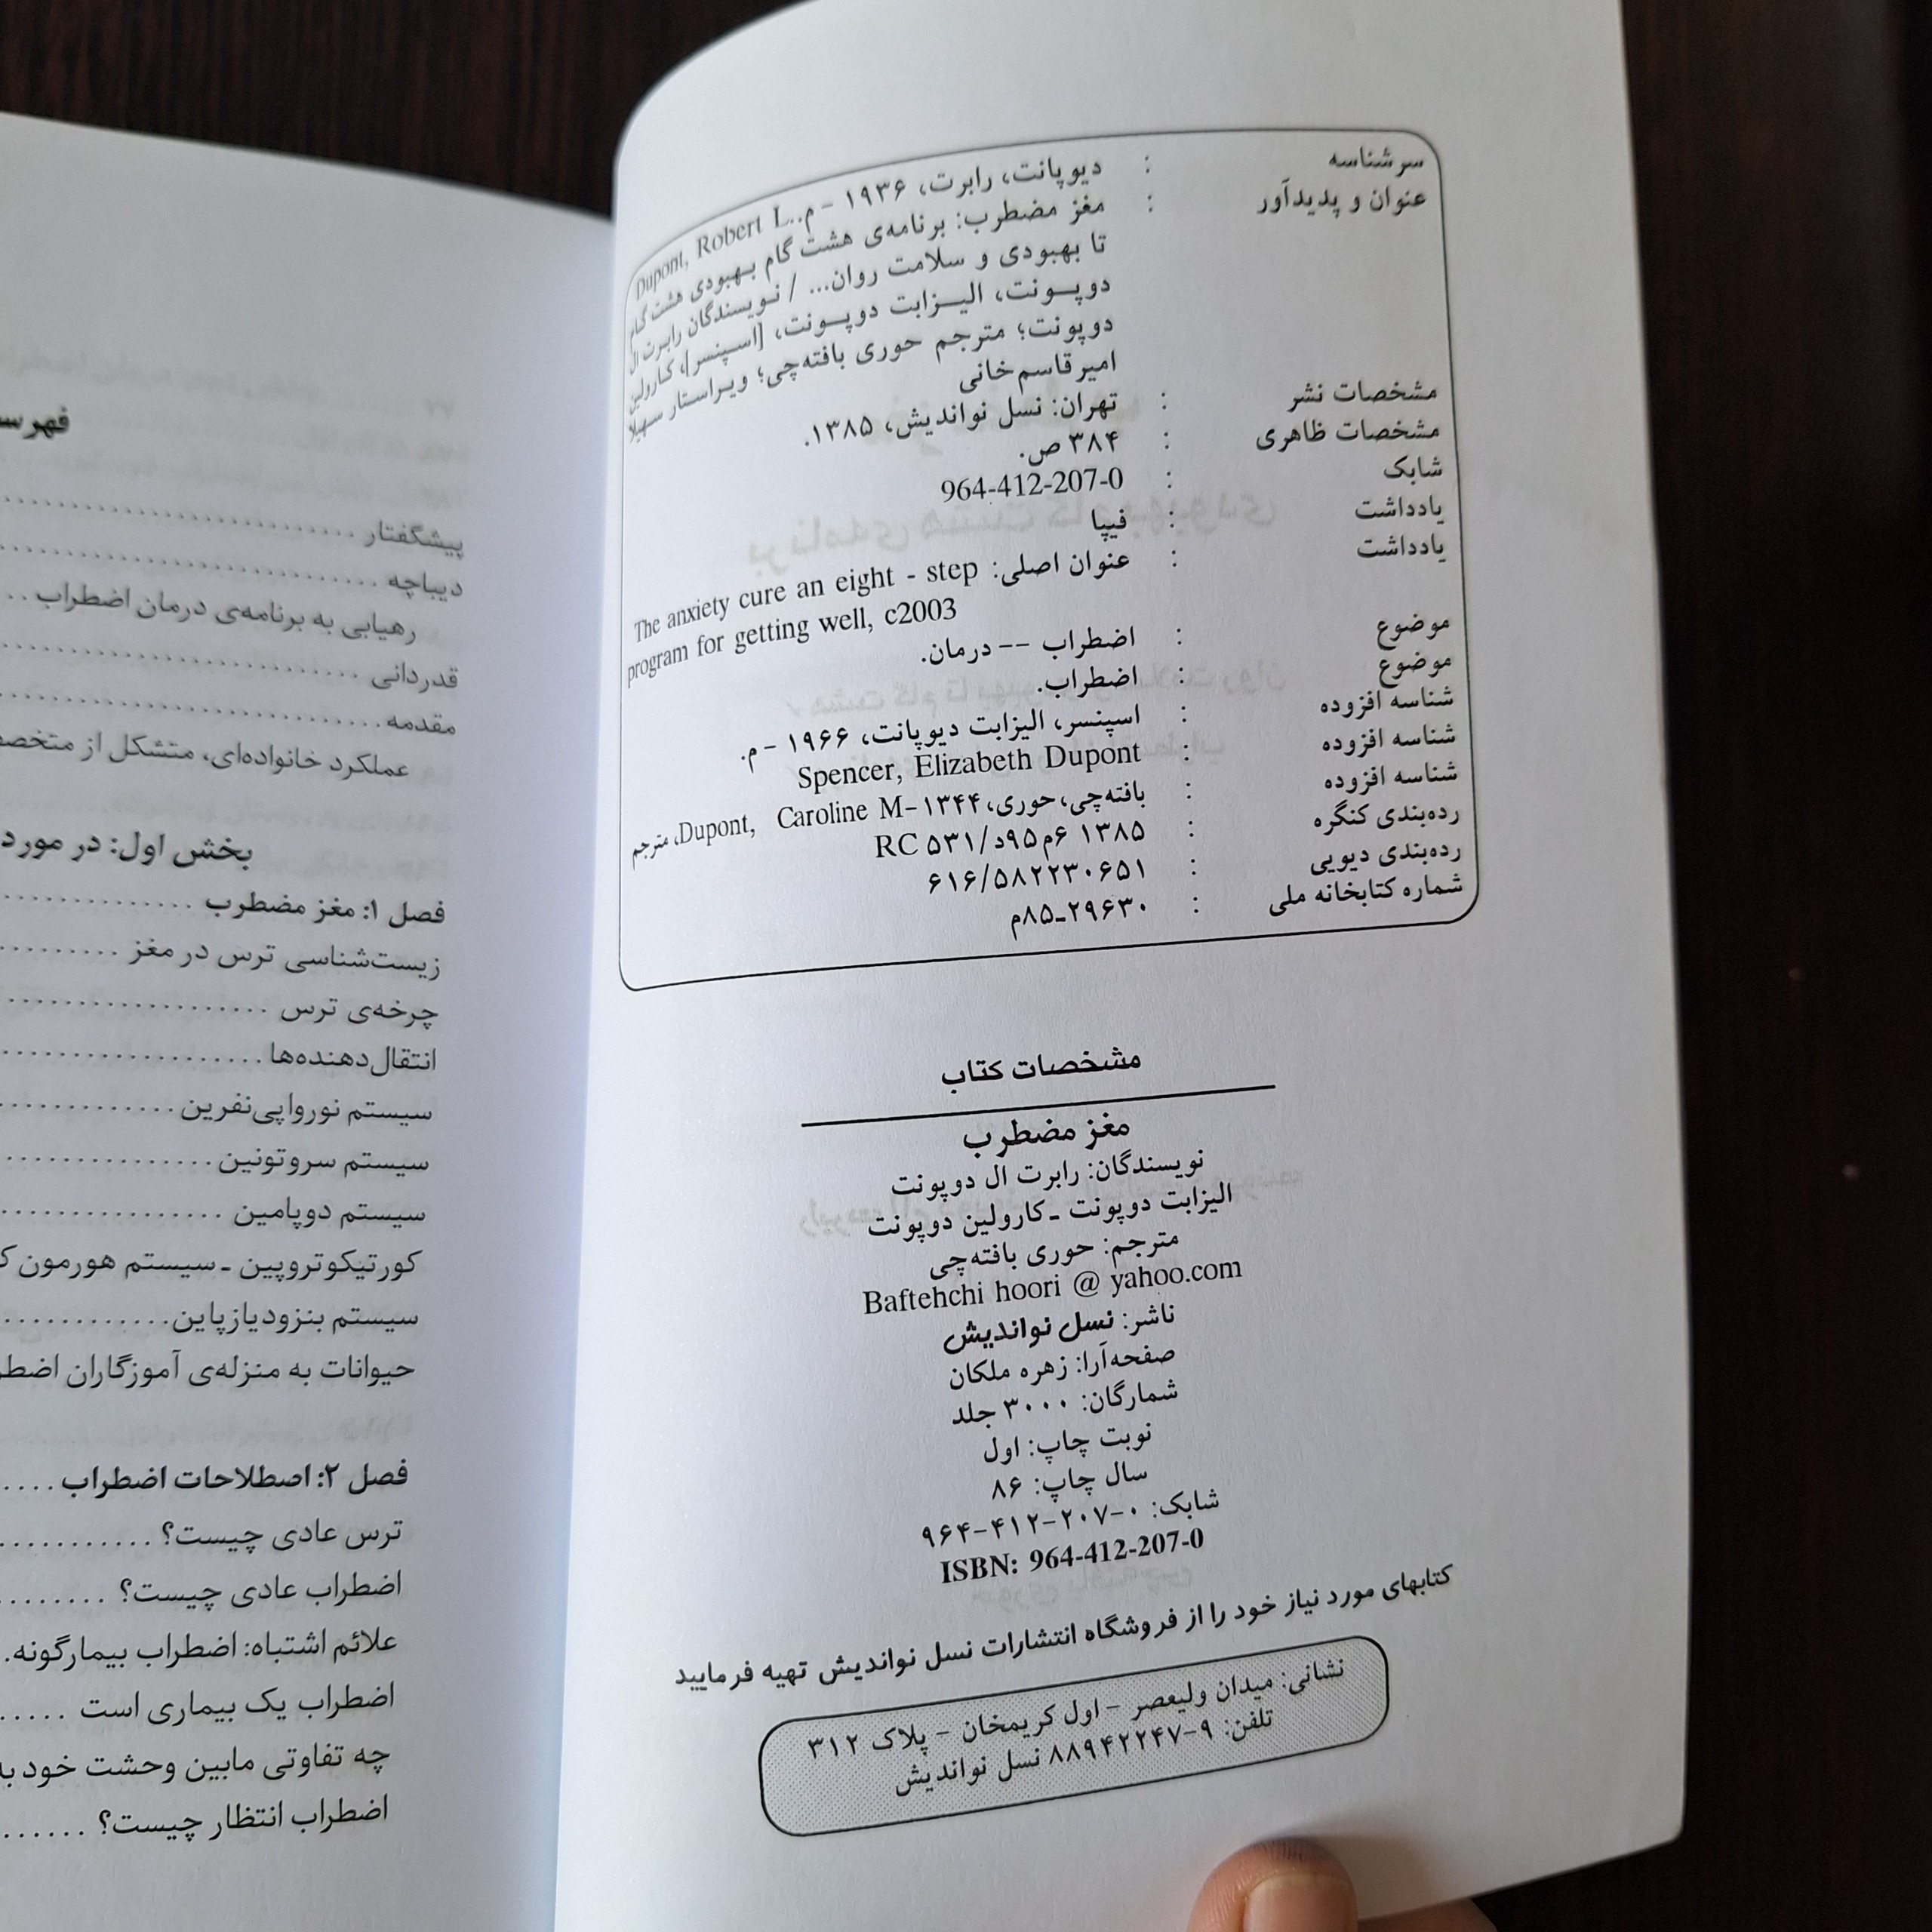 سرشناسه : دیوپانت، رابرت، ۱۹۳۶ - م.. Dupont, Robert L.
عنوان و پدیدآور : مغز مضطرب: برنامه‌ی هشت گام بهبودی هشت گام
تا بهبودی و سلامت روان... / نویسندگان رابرت ال
دوپونت، الیزابت دوپونت، [اسپنسر]، کارولین
دوپونت؛ مترجم حوری بافته‌چی؛ ویراستار سهیلا
امیرقاسم‌خانی
مشخصات نشر : تهران: نسل نواندیش، ۱۳۸۵.
مشخصات ظاهری : ۳۸۴ ص.
شابک : 964-412-207-0
یادداشت : فیپا
یادداشت : عنوان اصلی: The anxiety cure an eight - step
program for getting well, c2003
موضوع : اضطراب -- درمان.
موضوع : اضطراب.
شناسه افزوده : اسپنسر، الیزابت دیوپانت، ۱۹۶۶ - م.
شناسه افزوده : Spencer, Elizabeth Dupont
شناسه افزوده : بافته‌چی، حوری، ۱۳۴۴- Dupont, Caroline M، مترجم
رده‌بندی کنگره : ۱۳۸۵ ۶م۹۵د/RC ۵۳۱
رده‌بندی دیویی : ۶۱۶/۵۸۲۲۳۰۶۵۱
شماره کتابخانه ملی : ۲۹۶۳۰-۸۵م
مشخصات کتاب
مغز مضطرب
نویسندگان: رابرت ال دوپونت
الیزابت دوپونت - کارولین دوپونت
مترجم: حوری بافته‌چی
Baftehchi hoori @ yahoo.com
ناشر: نسل نواندیش
صفحه‌آرا: زهره ملکان
شمارگان: ۳۰۰۰ جلد
نوبت چاپ: اول
سال چاپ: ۸۶
شابک: ۰-۲۰۷-۴۱۲-۹۶۴
ISBN: 964-412-207-0
کتابهای مورد نیاز خود را از فروشگاه انتشارات نسل نواندیش تهیه فرمایید
نشانی: میدان ولیعصر - اول کریمخان - پلاک ۳۱۲
تلفن: ۹-۸۸۹۴۲۲۴۷ نسل نواندیش
پیشگفتار
دیباچه
رهیابی به برنامه‌ی درمان اضطراب
قدردانی
مقدمه
عملکرد خانواده‌ای، متشکل از
بخش اول: در مورد
فصل ۱: مغز مضطرب
زیست‌شناسی ترس در مغز
چرخه‌ی ترس
انتقال‌دهنده‌ها
سیستم نوروا‌پی‌نفرین
سیستم سروتونین
سیستم دوپامین
کورتیکوتروپین - سیستم هورمون
سیستم بنزودیازپاین
حیوانات به منزله‌ی آموزگاران
فصل ۲: اصطلاحات اضطراب
ترس عادی چیست؟
اضطراب عادی چیست؟
علائم اشتباه: اضطراب بیمارگونه.
اضطراب یک بیماری است
چه تفاوتی مابین وحشت خود
اضطراب انتظار چیست؟